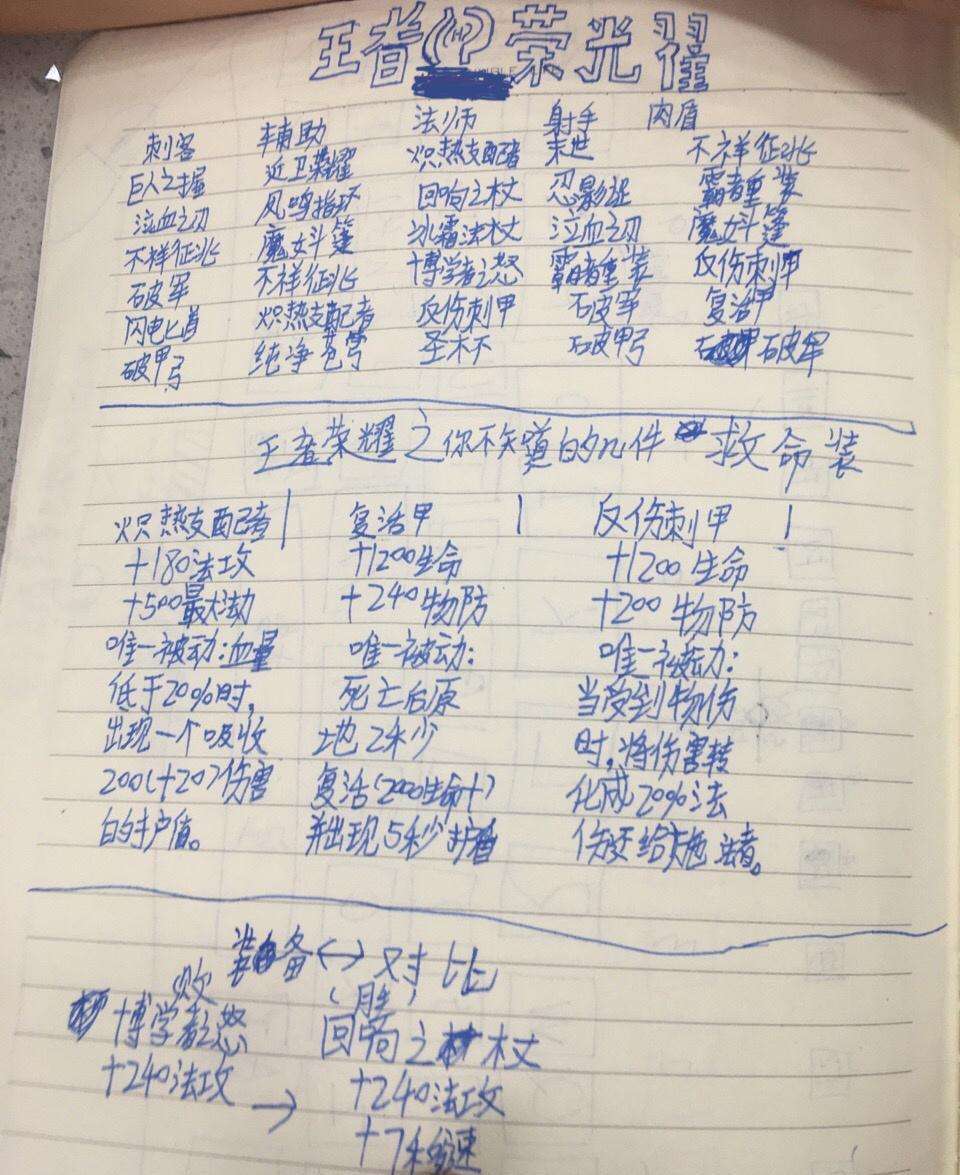 王者荣光耀
刺客 辅助 法师 射手 肉盾
巨人之握 近卫荣耀 炽热支配者 末世 不祥征兆
泣血之刃 风鸣指环 回响之杖 忍影足 霸者重装
不祥征兆 魔女斗篷 冰霜法杖 泣血之刃 魔女斗篷
破军 不祥征兆 博学者之怒 霸者重装 反伤刺甲
闪电匕首 炽热支配者 反伤刺甲 破军 复活甲
破甲弓 纯净苍穹 圣杯 破甲弓 破军
王者荣耀之你不知道的几件救命装
炽热支配者 复活甲 反伤刺甲
+180法攻 +1200生命 +1200生命
+500最大法力 +240物防 +200物防
唯一被动:血量 唯一被动: 唯一被动:
低于20%时, 死亡后原 当受到物伤
出现一个吸收 地2秒 时,将伤害转
200(+20)伤害 复活(2000生命+) 化成20%法
的护值。 并出现5秒护盾 伤还给施法者。
装备↔对比
败 (胜)
博学者之怒 回响之杖
+240法攻 → +240法攻
+7移速